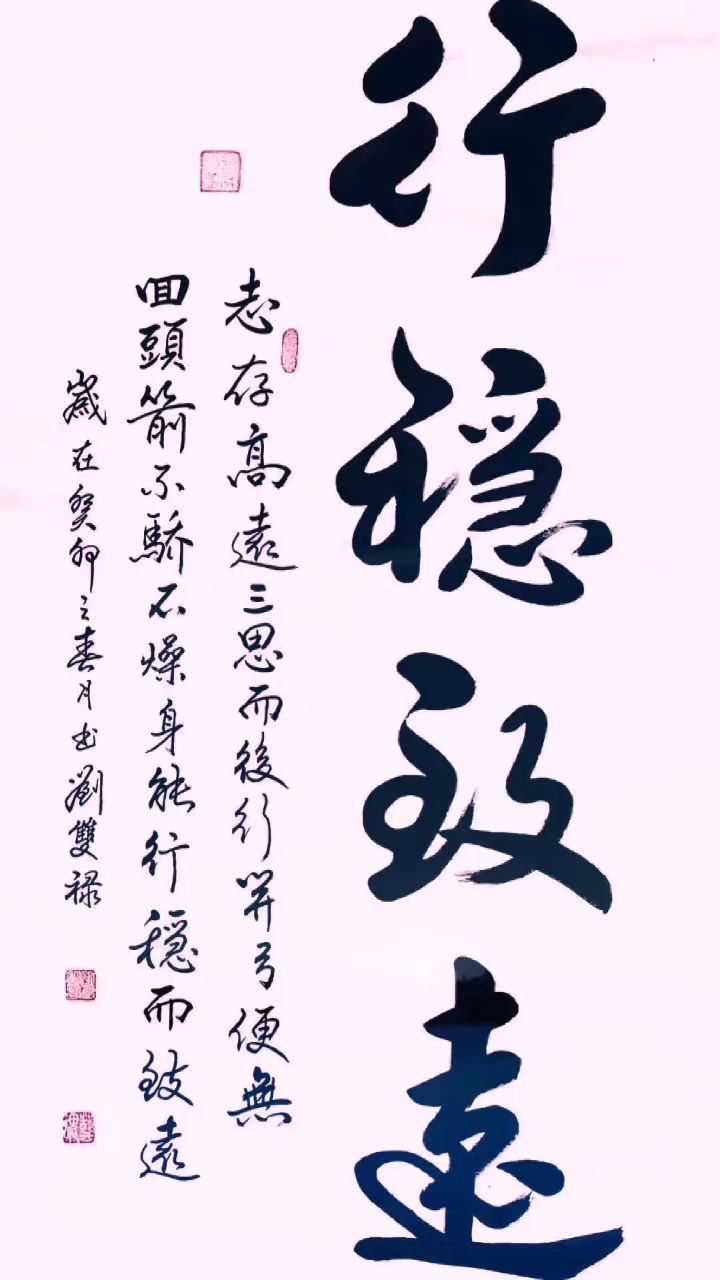 行穩致遠
志存高遠三思而後行開弓便無
回頭箭不驕不燥身能行穩而致遠
歲在癸卯之春月書劉雙禄